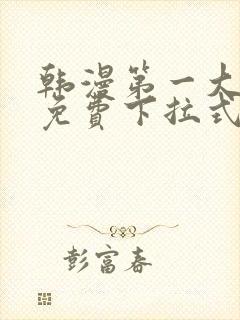 韩漫第一大
免費下拉式
彭富春